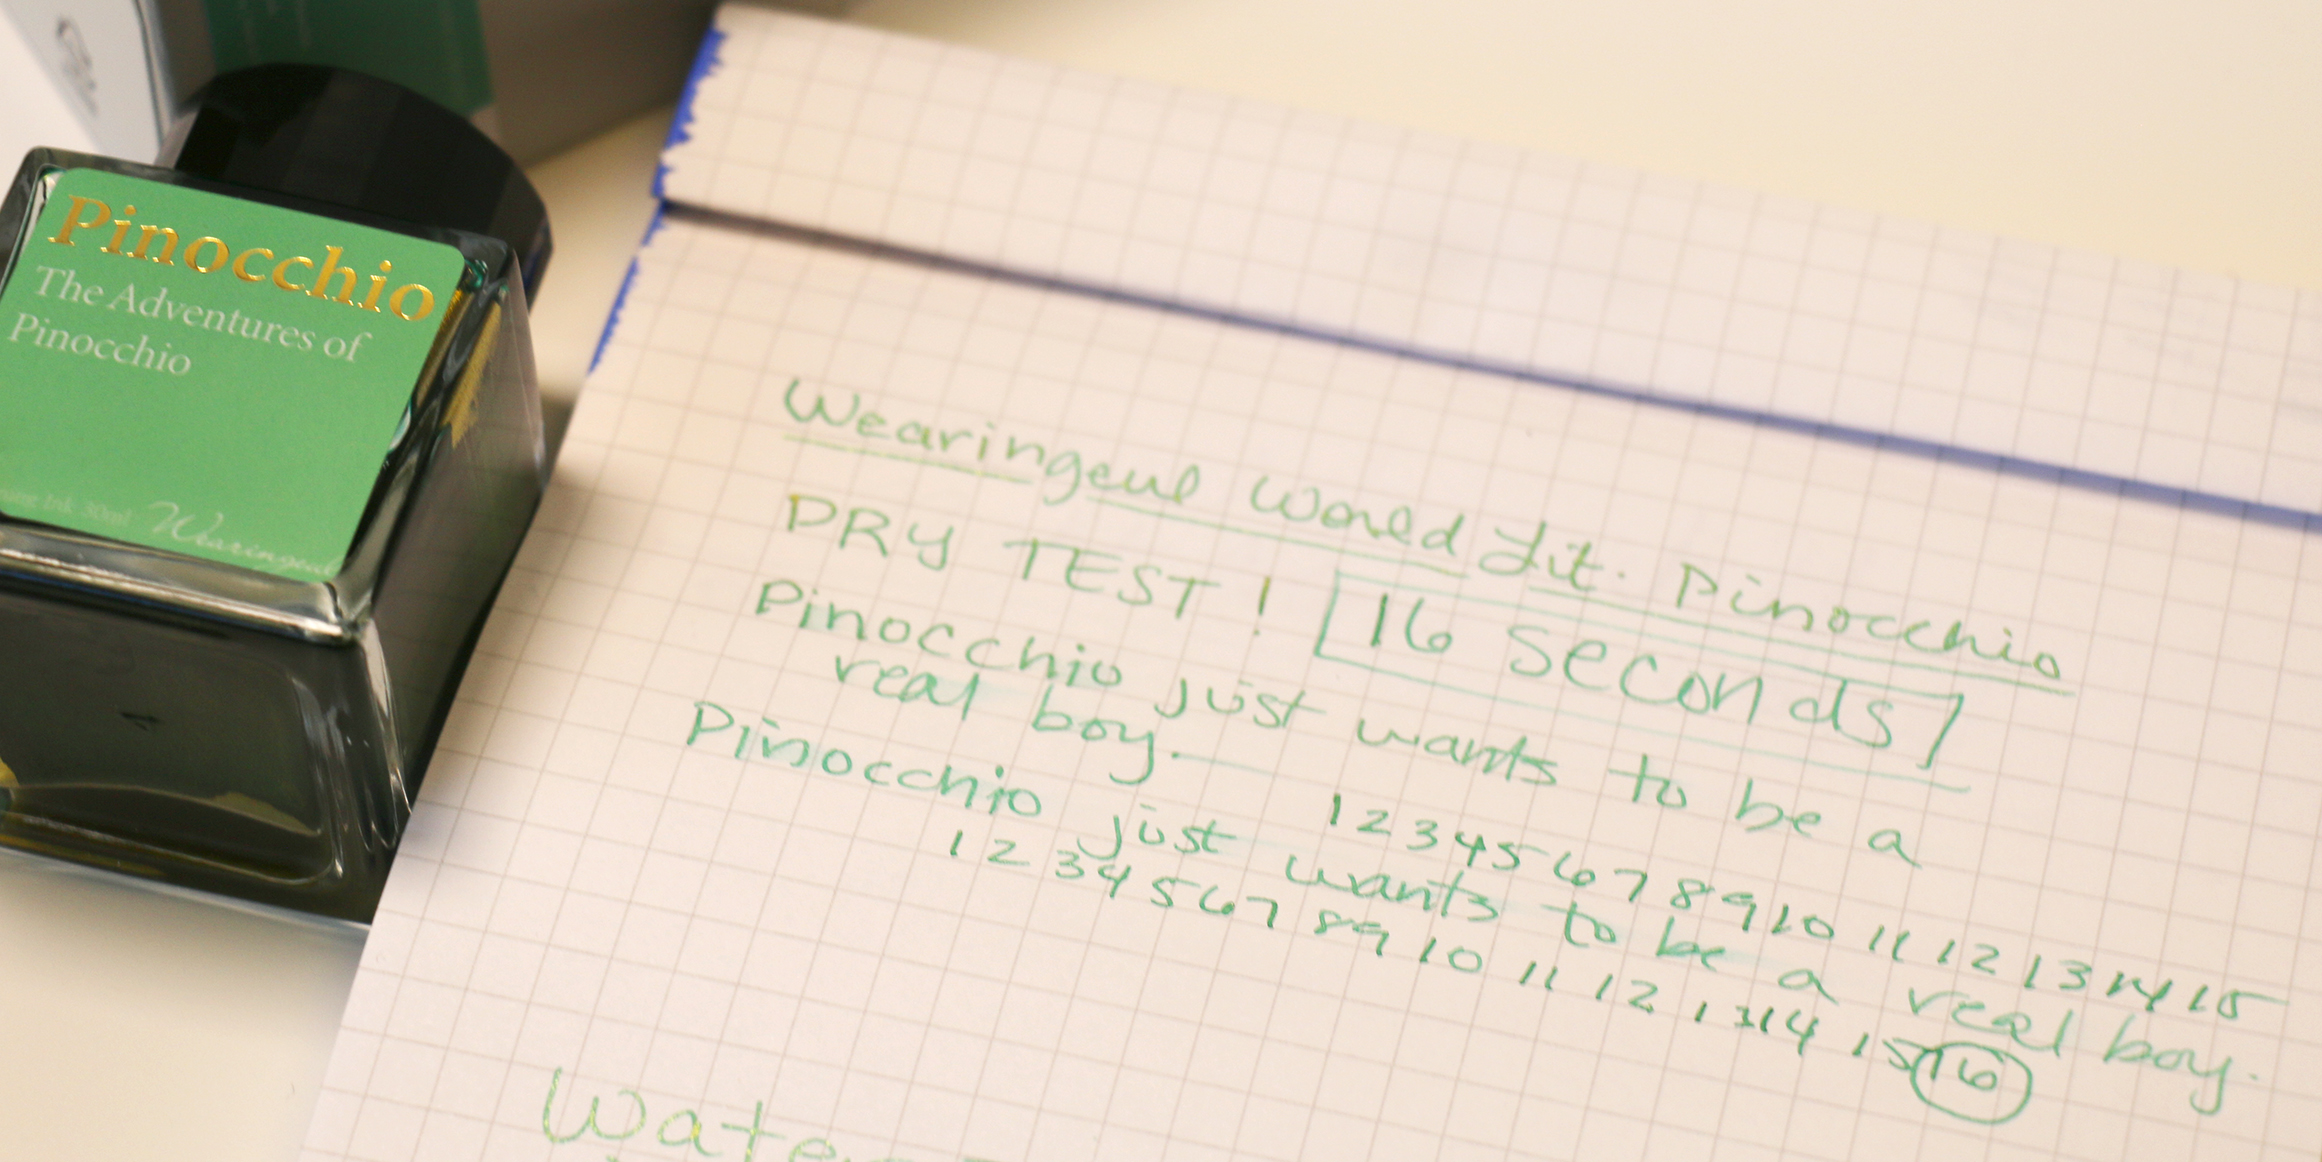 Pinocchio
The Adventures of
Pinocchio
Ink 30ml Wearingeul
Wearingeul World Lit. Pinocchio
DRY TEST! 16 seconds
Pinocchio just wants to be a
real boy.
1 2 3 4 5 6 7 8 9 10 11 12 13 14 15
Pinocchio just wants to be a real boy.
1 2 3 4 5 6 7 8 9 10 11 12 13 14 15 16